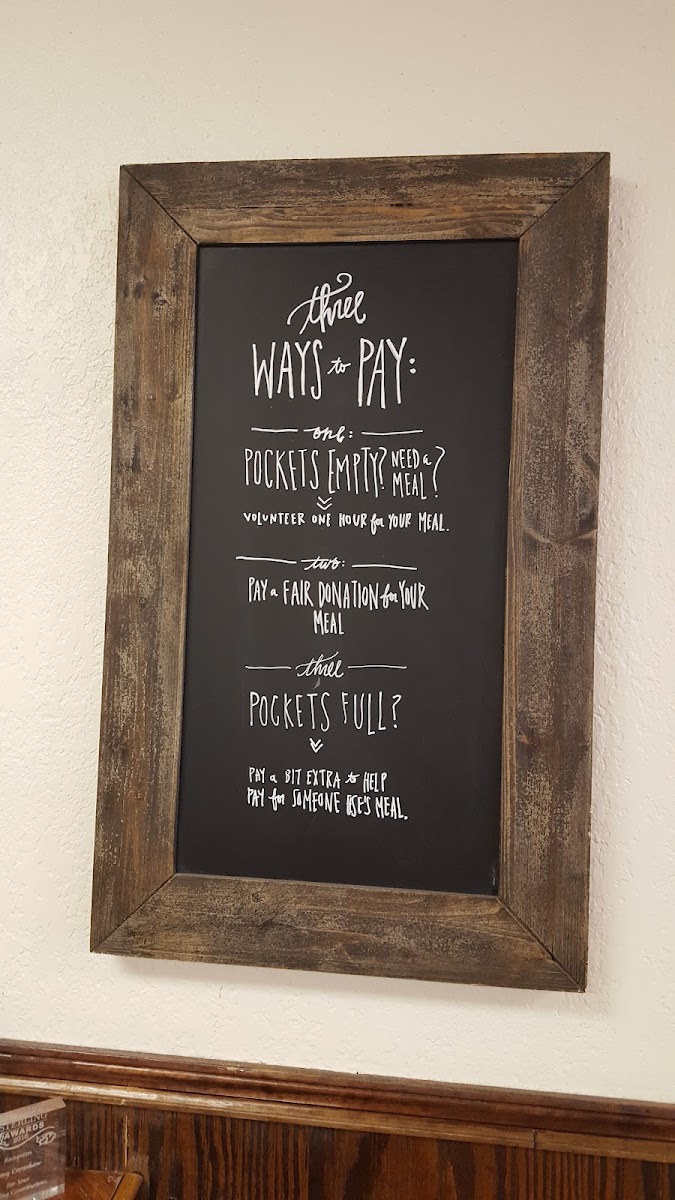 three
WAYS to PAY:
one:
POCKETS EMPTY? NEED a MEAL?
VOLUNTEER ONE HOUR for YOUR MEAL.
two:
PAY a FAIR DONATION for YOUR
MEAL
three
POCKETS FULL?
PAY a BIT EXTRA to HELP
PAY for SOMEONE ELSE'S MEAL.
STERLING
AWARDS
2016
Recognizes
Crenshaw
For Your
Contributions.